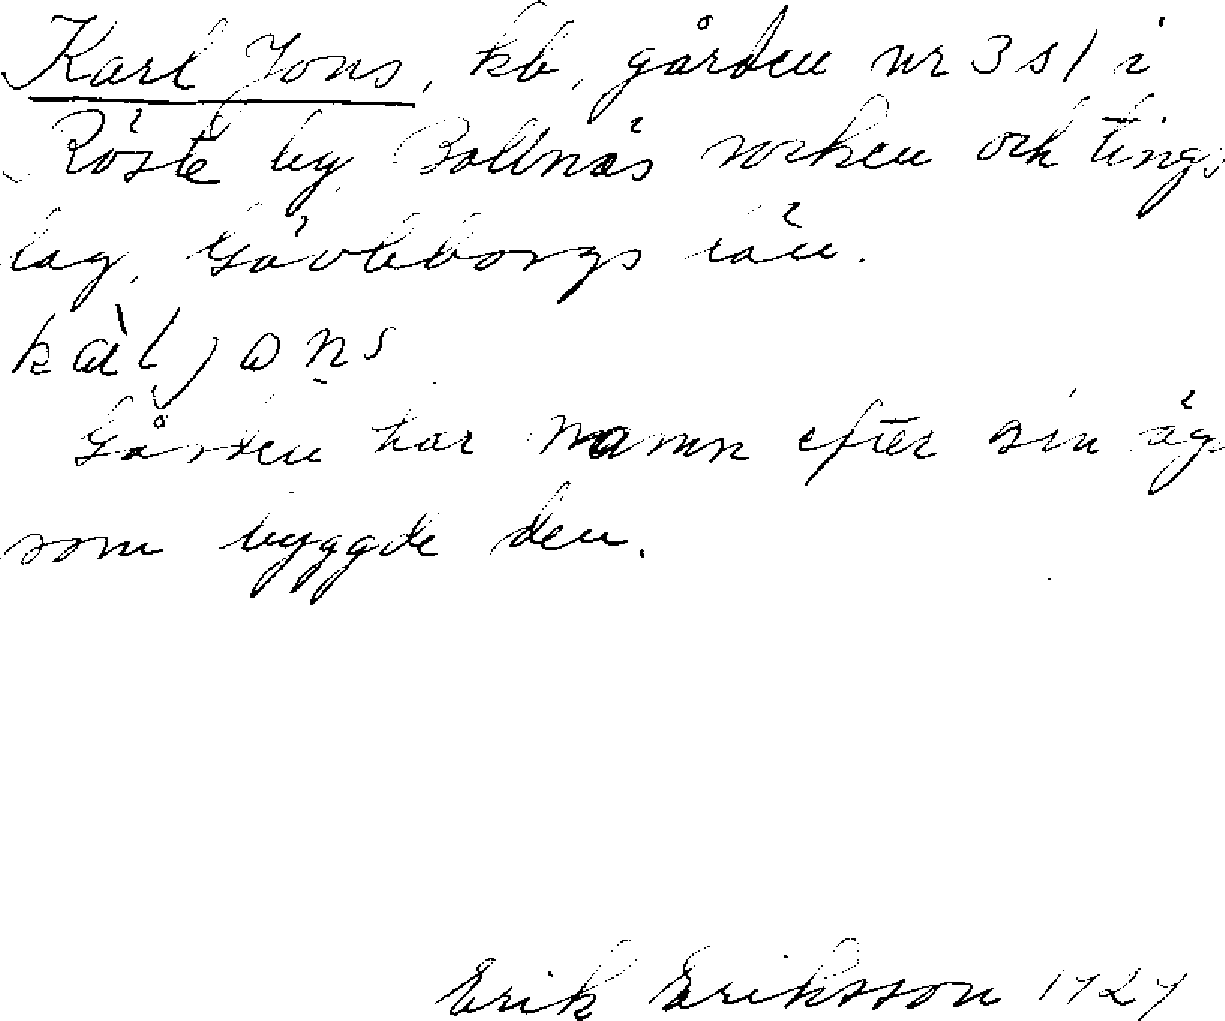 Karl Jons, kb, gården nr 3 s1 i
Röste by Bollnäs socken och tings
lag, Gävleborgs län.
Gården har namn efter sin äg
som byggde den.
Erik Eriksson